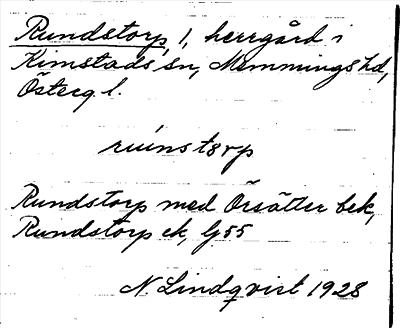 Rundstorp, 1, herrgård i
Kimstads sn, Memmings hd,
Österg. l.
ruinstorp
Rundstorp med Örsätter bek,
Rundstorp ek, G 55
N. Lindqvist 1928